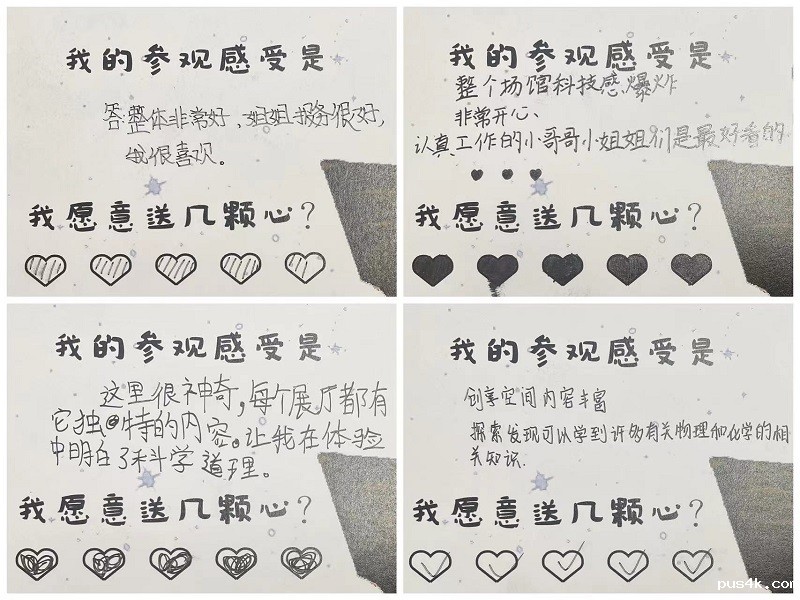 我的参观感受是
答:整体非常好,姐姐服务很好,
我很喜欢。
我愿意送几颗心?
我的参观感受是
整个场馆科技感爆炸
非常开心、
认真工作的小哥哥小姐姐们是最好看的
我愿意送几颗心?
我的参观感受是
这里很神奇,每个展厅都有
它独特的内容。让我在体验
中明白了科学道理。
我愿意送几颗心?
我的参观感受是
创享空间内容丰富
探索发现可以学到许多有关物理和化学的相
关知识.
我愿意送几颗心?
pus4k.com